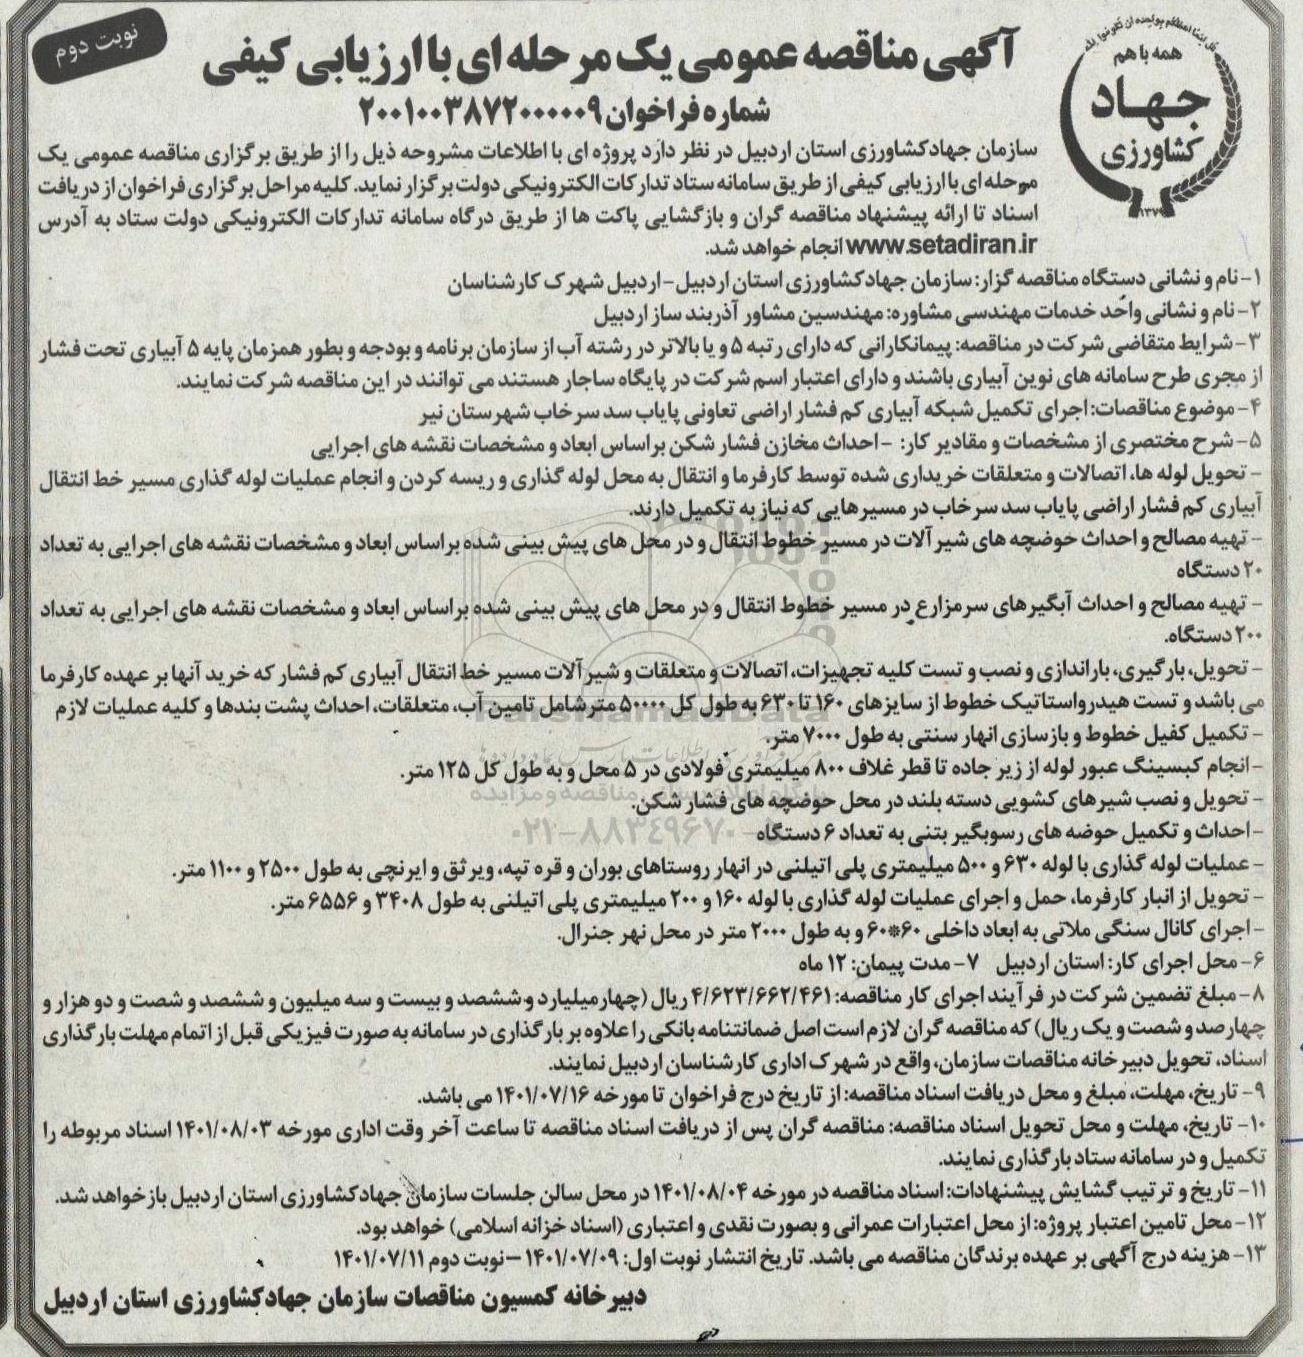 نوبت دوم
همه با هم
جهاد
کشاورزی
آگهی مناقصه عمومی یک مرحله ای با ارزیابی کیفی
شماره فراخوان ۲۰۰۱۰۰۳۸۷۲۰۰۰۰۰۹
سازمان جهادکشاورزی استان اردبیل در نظر دارد پروژه ای با اطلاعات مشروحه ذیل را از طریق برگزاری مناقصه عمومی یک
مرحله ای با ارزیابی کیفی از طریق سامانه ستاد تدارکات الکترونیکی دولت برگزار نماید. کلیه مراحل برگزاری فراخوان از دریافت
اسناد تا ارائه پیشنهاد مناقصه گران و بازگشایی پاکت ها از طریق درگاه سامانه تدارکات الکترونیکی دولت ستاد به آدرس
www.setadiran.ir انجام خواهد شد.
۱- نام و نشانی دستگاه مناقصه گزار: سازمان جهادکشاورزی استان اردبیل- اردبیل شهرک کارشناسان
۲- نام و نشانی واحد خدمات مهندسی مشاوره: مهندسین مشاور آذربند ساز اردبیل
۳- شرایط متقاضی شرکت در مناقصه: پیمانکارانی که دارای رتبه ۵ و یا بالاتر در رشته آب از سازمان برنامه و بودجه و بطور همزمان پایه ۵ آبیاری تحت فشار
از مجری طرح سامانه های نوین آبیاری باشند و دارای اعتبار اسم شرکت در پایگاه ساجار هستند می توانند در این مناقصه شرکت نمایند.
۴- موضوع مناقصات: اجرای تکمیل شبکه آبیاری کم فشار اراضی تعاونی پایاب سد سرخاب شهرستان نیر
۵- شرح مختصری از مشخصات و مقادیر کار: - احداث مخازن فشار شکن براساس ابعاد و مشخصات نقشه های اجرایی
- تحویل لوله ها، اتصالات و متعلقات خریداری شده توسط کارفرما و انتقال به محل لوله گذاری و ریسه کردن و انجام عملیات لوله گذاری مسیر خط انتقال
آبیاری کم فشار اراضی پایاب سد سرخاب در مسیرهایی که نیاز به تکمیل دارند.
- تهیه مصالح و احداث حوضچه های شیرآلات در مسیر خطوط انتقال و در محل های پیش بینی شده براساس ابعاد و مشخصات نقشه های اجرایی به تعداد
۲۰ دستگاه
- تهیه مصالح و احداث آبگیرهای سرمزارع در مسیر خطوط انتقال و در محل های پیش بینی شده براساس ابعاد و مشخصات نقشه های اجرایی به تعداد
۲۰۰ دستگاه.
- تحویل، بارگیری، باراندازی و نصب و تست کلیه تجهیزات، اتصالات و متعلقات و شیرآلات مسیر خط انتقال آبیاری کم فشار که خرید آنها بر عهده کارفرما
می باشد و تست هیدرواستاتیک خطوط از سایزهای ۱۶۰ تا ۶۳۰ به طول کل ۵۰۰۰۰ متر شامل تامین آب، متعلقات، احداث پشت بندها و کلیه عملیات لازم
- تکمیل کفیل خطوط و بازسازی انهار سنتی به طول ۷۰۰۰ متر.
- انجام کیسینگ عبور لوله از زیر جاده تا قطر غلاف ۸۰۰ میلیمتری فولادی در ۵ محل و به طول کل ۱۲۵ متر.
- تحویل و نصب شیرهای کشویی دسته بلند در محل حوضچه های فشار شکن.
- احداث و تکمیل حوضه های رسوبگیر بتنی به تعداد ۶ دستگاه
- عملیات لوله گذاری با لوله ۶۳۰ و ۵۰۰ میلیمتری پلی اتیلنی در انهار روستاهای بوران و قره تپه، ویرثق و ایرنچی به طول ۲۵۰۰ و ۱۱۰۰ متر.
- تحویل از انبار کارفرما، حمل و اجرای عملیات لوله گذاری با لوله ۱۶۰ و ۲۰۰ میلیمتری پلی اتیلنی به طول ۳۴۰۸ و ۶۵۵۶ متر.
- اجرای کانال سنگی ملاتی به ابعاد داخلی ۶۰*۶۰ و به طول ۲۰۰۰ متر در محل نهر جنرال.
۶- محل اجرای کار: استان اردبیل ۷- مدت پیمان: ۱۲ ماه
۸- مبلغ تضمین شرکت در فرآیند اجرای کار مناقصه: ۴/۶۲۳/۶۶۲/۴۶۱ ریال (چهارمیلیارد و ششصد و بیست و سه میلیون و ششصد و شصت و دو هزار و
چهارصد و شصت و یک ریال) که مناقصه گران لازم است اصل ضمانتنامه بانکی را علاوه بر بارگذاری در سامانه به صورت فیزیکی قبل از اتمام مهلت بارگذاری
اسناد، تحویل دبیرخانه مناقصات سازمان، واقع در شهرک اداری کارشناسان اردبیل نمایند.
۹- تاریخ، مهلت، مبلغ و محل دریافت اسناد مناقصه: از تاریخ درج فراخوان تا مورخه ۱۴۰۱/۰۷/۱۶ می باشد.
۱۰- تاریخ، مهلت و محل تحویل اسناد مناقصه: مناقصه گران پس از دریافت اسناد مناقصه تا ساعت آخر وقت اداری مورخه ۱۴۰۱/۰۸/۰۳ اسناد مربوطه را
تکمیل و در سامانه ستاد بارگذاری نمایند.
۱۱- تاریخ و ترتیب گشایش پیشنهادات: اسناد مناقصه در مورخه ۱۴۰۱/۰۸/۰۴ در محل سالن جلسات سازمان جهادکشاورزی استان اردبیل بازخواهد شد.
۱۲- محل تامین اعتبار پروژه: از محل اعتبارات عمرانی و بصورت نقدی و اعتباری (اسناد خزانه اسلامی) خواهد بود.
۱۳- هزینه درج آگهی بر عهده برندگان مناقصه می باشد. تاریخ انتشار نوبت اول: ۱۴۰۱/۰۷/۰۹ - نوبت دوم ۱۴۰۱/۰۷/۱۱
دبیرخانه کمسیون مناقصات سازمان جهادکشاورزی استان اردبیل